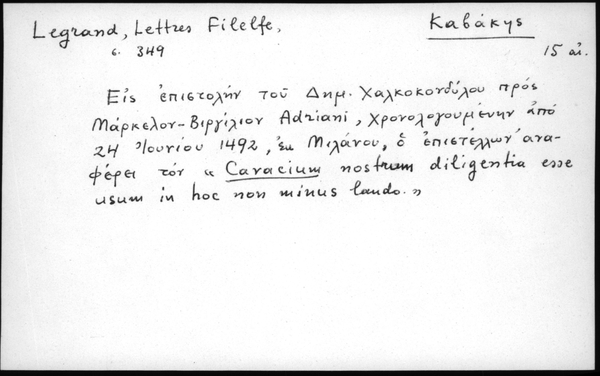 Legrand, Lettres Filelfe,
Καβάκης
σ. 349
15 αἰ.
Εἰς ἐπιστολήν τοῦ Δημ. Χαλκοκονδύλου πρός
Μάρκελον-Βιργίλιον Adriani, χρονολογουμένην ἀπό
24 Ἰουνίου 1492, ἐκ Μιλάνου, ὁ ἐπιστέλλων ἀνα-
φέρει τόν « Cavacium nostrum diligentia esse
usum in hoc non minus laudo. »